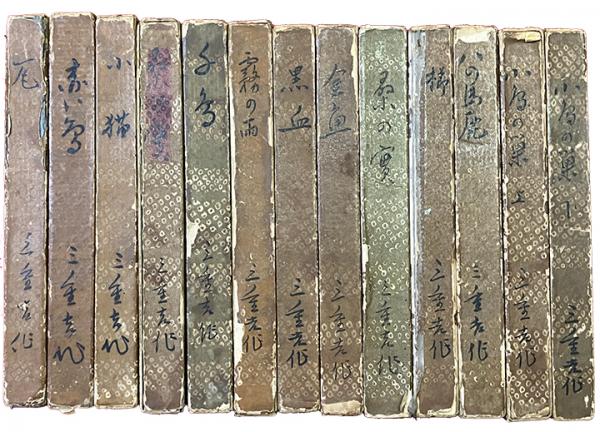 瓦 三重吉作
赤い鳥 三重吉作
小猫 三重吉作
三重吉作
千鳥 三重吉作
霧の雨 三重吉作
黒血 三重吉作
金魚 三重吉作
桑の實 三重吉作
櫛 三重吉作
八の馬鹿 三重吉作
小鳥の巣 上 三重吉作
小鳥の巣 下 三重吉作